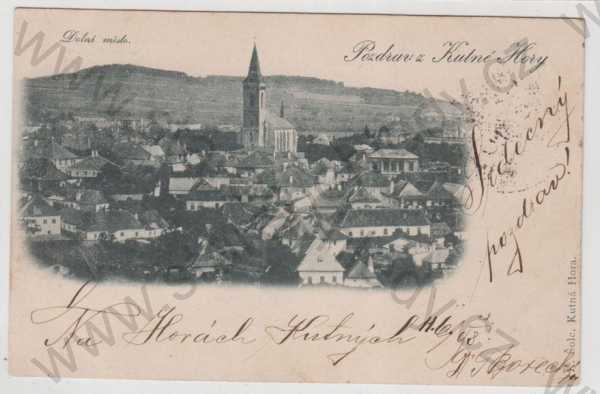 Dolní město.
Pozdrav z Kutné Hory
Srdečný
pozdrav!
Na Horách Kutných 11./6. 98
Borecký
Šolc, Kutná Hora.